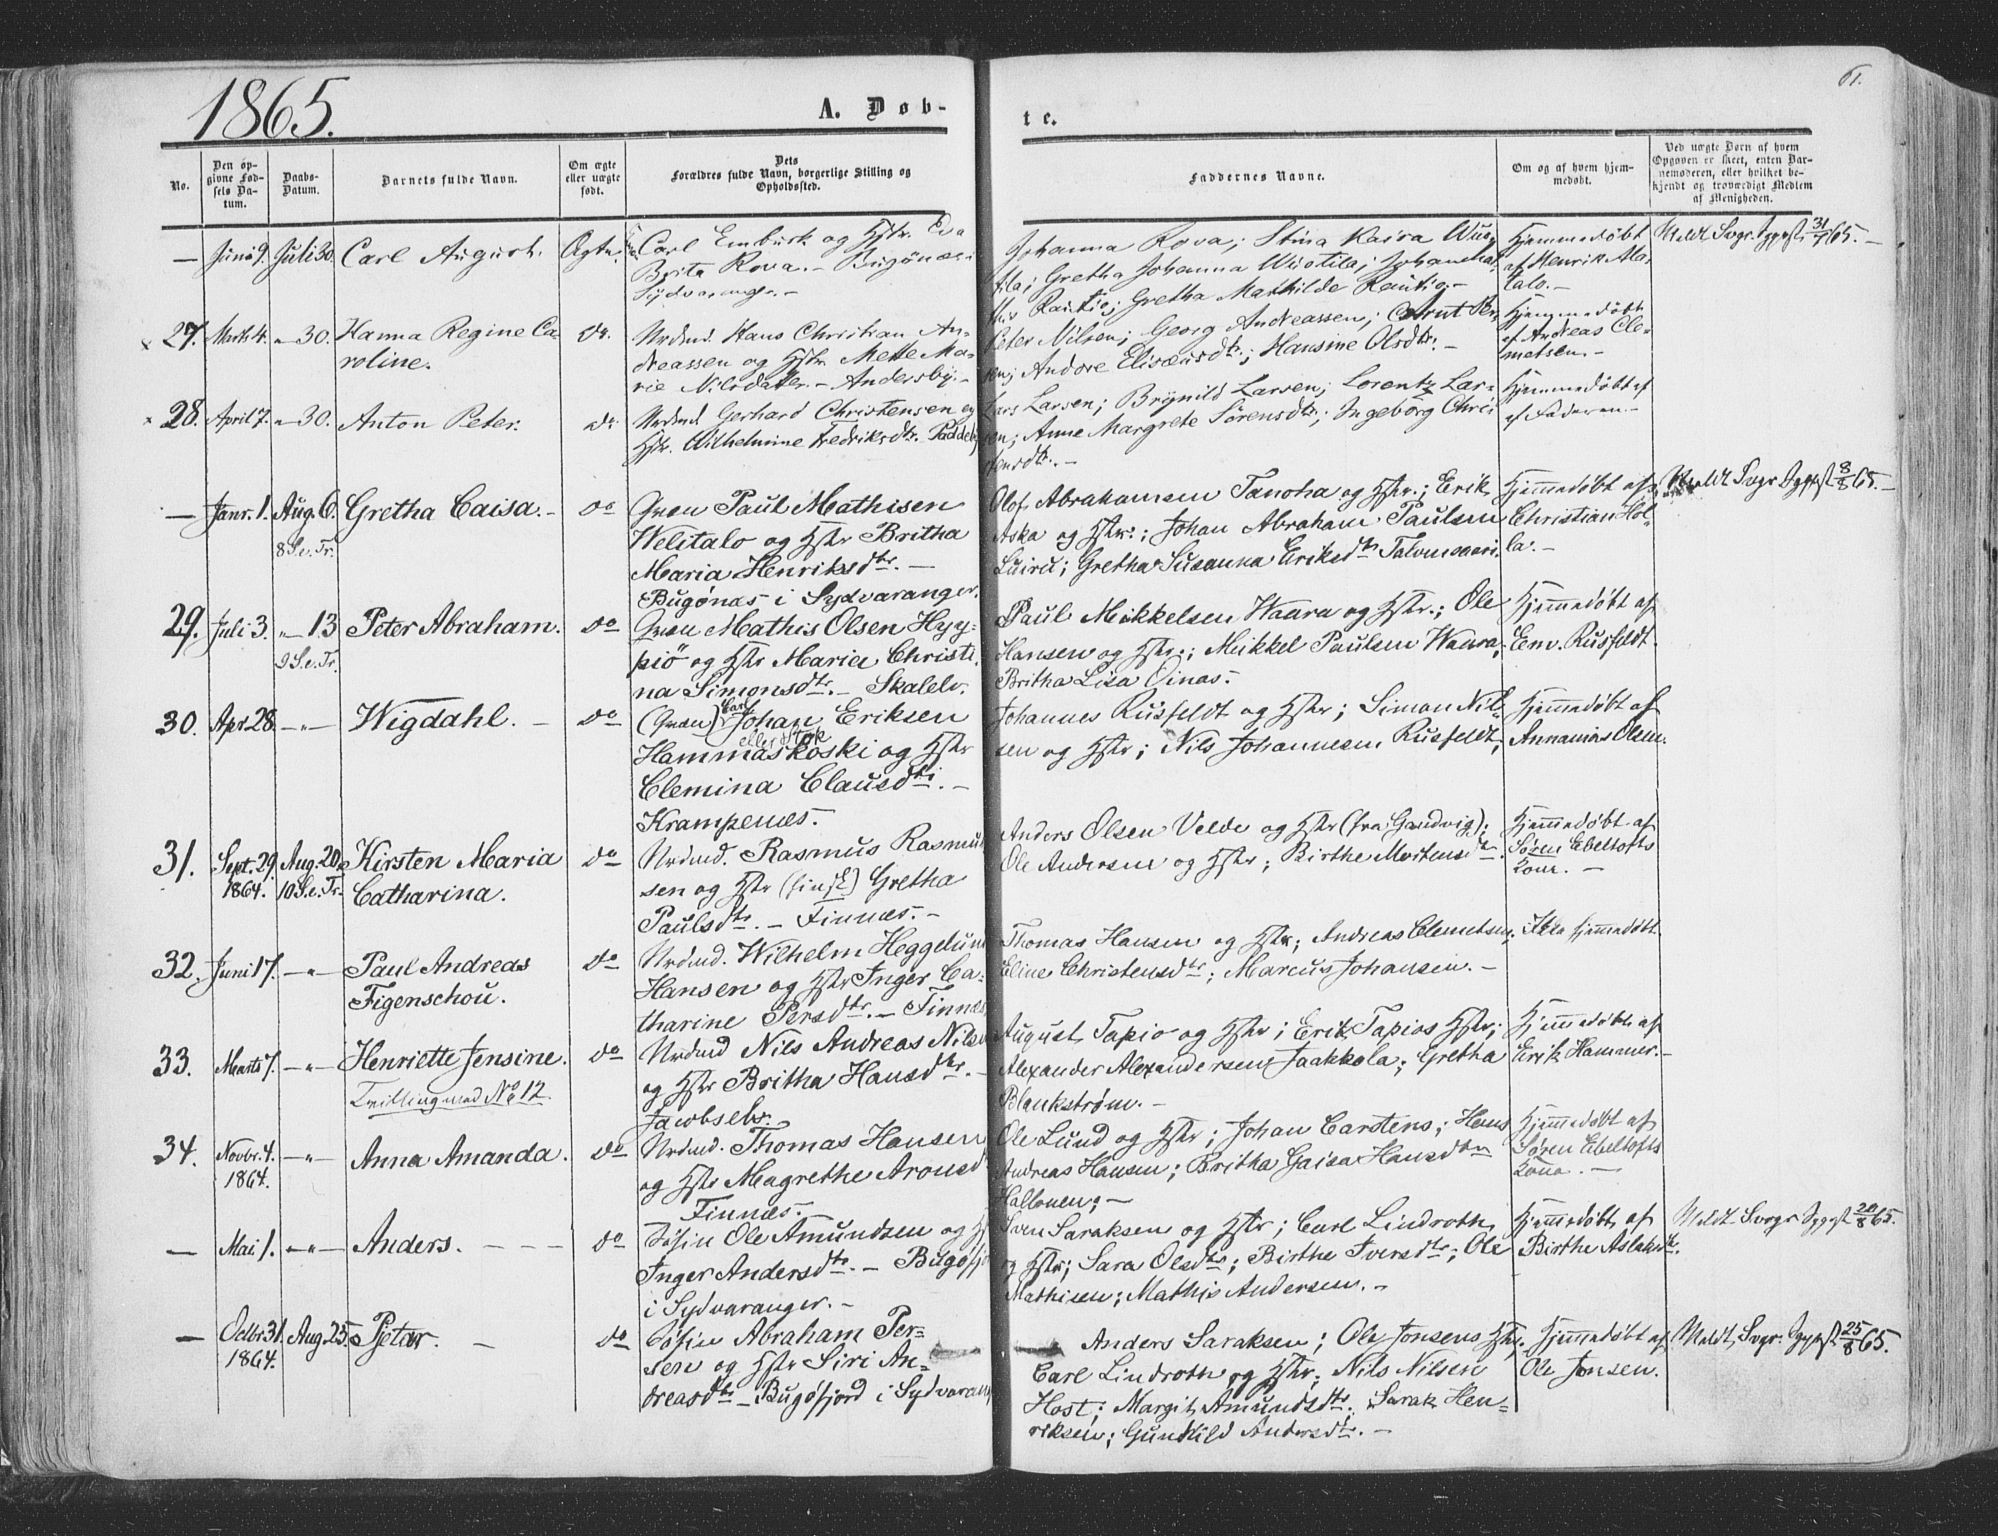 1865.
A. Døb-
te.
61.
No.
Den op-
givne Fød-
sels Da-
tum.
Daabs-
Datum.
Barnets fulde Navn.
Om ægte
eller uægte
født.
Dets
Forældres fulde Navn, borgerlige Stilling og
Opholdssted.
Faddernes Navne.
Om og af hvem hjem-
medøbt.
Ved uægte Børn af hvem
Opgaven er skeet, enten Bar-
nemoderen, eller hvilket be-
kjendt og troværdigt Medlem
af Menigheden.
— Juni 9. Juli 30. Carl August. Ægte.
Carl Emburk og Hstr. Eva
Brita Rova. — Bugönæs i
Sydvaranger. —
Johanna Rova; Stina Kaisa Wuo-
tila; Gretha Johanna Wuotila; Johan Mat-
this Rautio; Gretha Mathilde Rautio. —
Hjemmedøbt
af Henrik Ala-
talo. —
Meldt Svgr. Sggpst. 31/7 65. —
x 27. Marts 4. „ 30. Hanna Regine Ca-
roline.
do.
Nrdmd. Hans Christian An-
dreassen og Hstr. Mette Ma-
rie Nilsdatter. — Andersby. —
Peter Nilsen; Georg Andreassen; Cornut Per-
sen; Andore Elisæusdtr.; Hansine Olsdtr. —
Hjemmedøbt
af Andreas Cle-
metsen. —
x 28. April 7. „ 30. Anton Peter. do.
Nrdmd. Gerhard Christensen og
Hstr. Wilhelmine Fredriksdtr. Paddeby
Lars Larsen; Brynild Larsen; Lorentz Lar-
sen; Anne Margrete Sörensdtr.; Ingeborg Chri-
stensdtr. —
Hjemmedøbt af
af Faderen. —
— Janr. 1. Aug. 6. Gretha Caisa. — do
8 S. e. Tr.
Qvæn Paul Mathisen
Welitalo og Hstr Britha
Maria Henriksdtr. —
Bugönæs i Sydvaranger.
Olof Abrahamsen Tanoha og Hstr.; Erik
Aska og Hstr.; Johan Abraham Paulsen
Luiro; Gretha Susanna Eriksdtr Talvensaari
Hjemmedøbt af
Christian Hol-
la. —
Meldt Svgr Sggpst 8/8 65. —
29. Juli 3. „ 13 Peter Abraham. do
9 S. e. Tr.
Qvæn Mathis Olsen Hyy-
piö og Hstr Maria Christi-
na Simonsdtr. — Skalelv.
Paul Mikkelsen Waara og Hstr.; Ole
Hansen og Hstr.; Mikkel Paulsen Waara;
Britha Lisa Oinas.
Hjemmedøbt af
Em. Rusfeldt.
30. Apr. 28. — „ — Wigdahl. — do
(Qvæn) Carl Johan Eriksen
eller Stok
Hammaskoski og Hstr
Clemina Clausdtr. —
Krampenæs.
Johannes Rusfeldt og Hstr; Simon Nil-
sen og Hstr; Nils Johannesen Rusfeldt;
Hjemmedøbt af
Annanias Olsen.
31. Sept. 29. Aug. 20. Kirsten Maria
1864. 10 S. e. Tr. Catharina.
do
Nrdmd. Rasmus Rasmus-
sen og Hstr (finsk) Gretha
Paulsdtr. — Finnæs. —
Anders Olsen Velde og Hstr (fra Gandvig);
Ole Andersen og Hstr; Birthe Mortensdtr.
Hjemmedøbt af
Søren Ebeltofts
Kone. —
32. Juni 17. — „ — Paul Andreas
Figenschou.
do
Nrdmd. Wilhelm Heggelund
Hansen og Hstr Inger Ca-
tharine Persdtr. — Finnæs
Thomas Hansen og Hstr; Andreas Clemetsen;
Eline Christensdtr; Marcus Johansen. —
Ikke hjemmedøbt.
33. Marts 7. — „ — Henriette Jensine. do
Tvilling med No 12.
Nrdmd Nils Andreas Nilsen
og Hstr Britha Hansdtr. —
Jacobselv.
August Tapio og Hstr; Erik Tapios Hstr;
Alexander Alexandersen Jaakkola; Gretha
Blankstrøm. —
Hjemmedøbt af
Erik Hammer. —
34. Novbr. 4. — „ — Anna Amanda. do
1864.
Nrdmd. Thomas Hansen
og Hstr Magrethe Aronsdtr
Finnæs. —
Ole Lund og Hstr; Johan Carstens; Hans
Andreas Hansen; Britha Caisa Hansdtr
Hallonen; —
Hjemmedøbt af
Søren Ebeltofts
Kone. —
— Mai 1. — „ — Anders. — — — do
Søfin Ole Amundsen og Hstr
Inger Andersdtr. — Bugøfjord
i Sydvaranger. —
Sven Saraksen og Hstr; Carl Lindroth
og Hstr; Sara Olsdtr; Birthe Iversdtr; Ole
Mathisen; Mathis Andersen. —
Hjemmedøbt af
Birthe Aslaksdtr.
Meldt Svgr Sggpst 20/8 65.
— Octbr 31. Aug. 25. Pjetar. — do
1864.
Søfin Abraham Per-
sen og Hstr Siri An-
dreasdtr — Bugøfjord i Sydvarang
Anders Saraksen; Ole Jonsens Hstr;
Carl Lindroth og Hstr; Nils Nilsen
Hast; Margit Amundsdtr; Sarak Hen-
riksen; Gunhild Andersdtr. —
Hjemmedøbt af
Ole Jonsen.
Meldt Svgr. Sggpst 25/8 65.